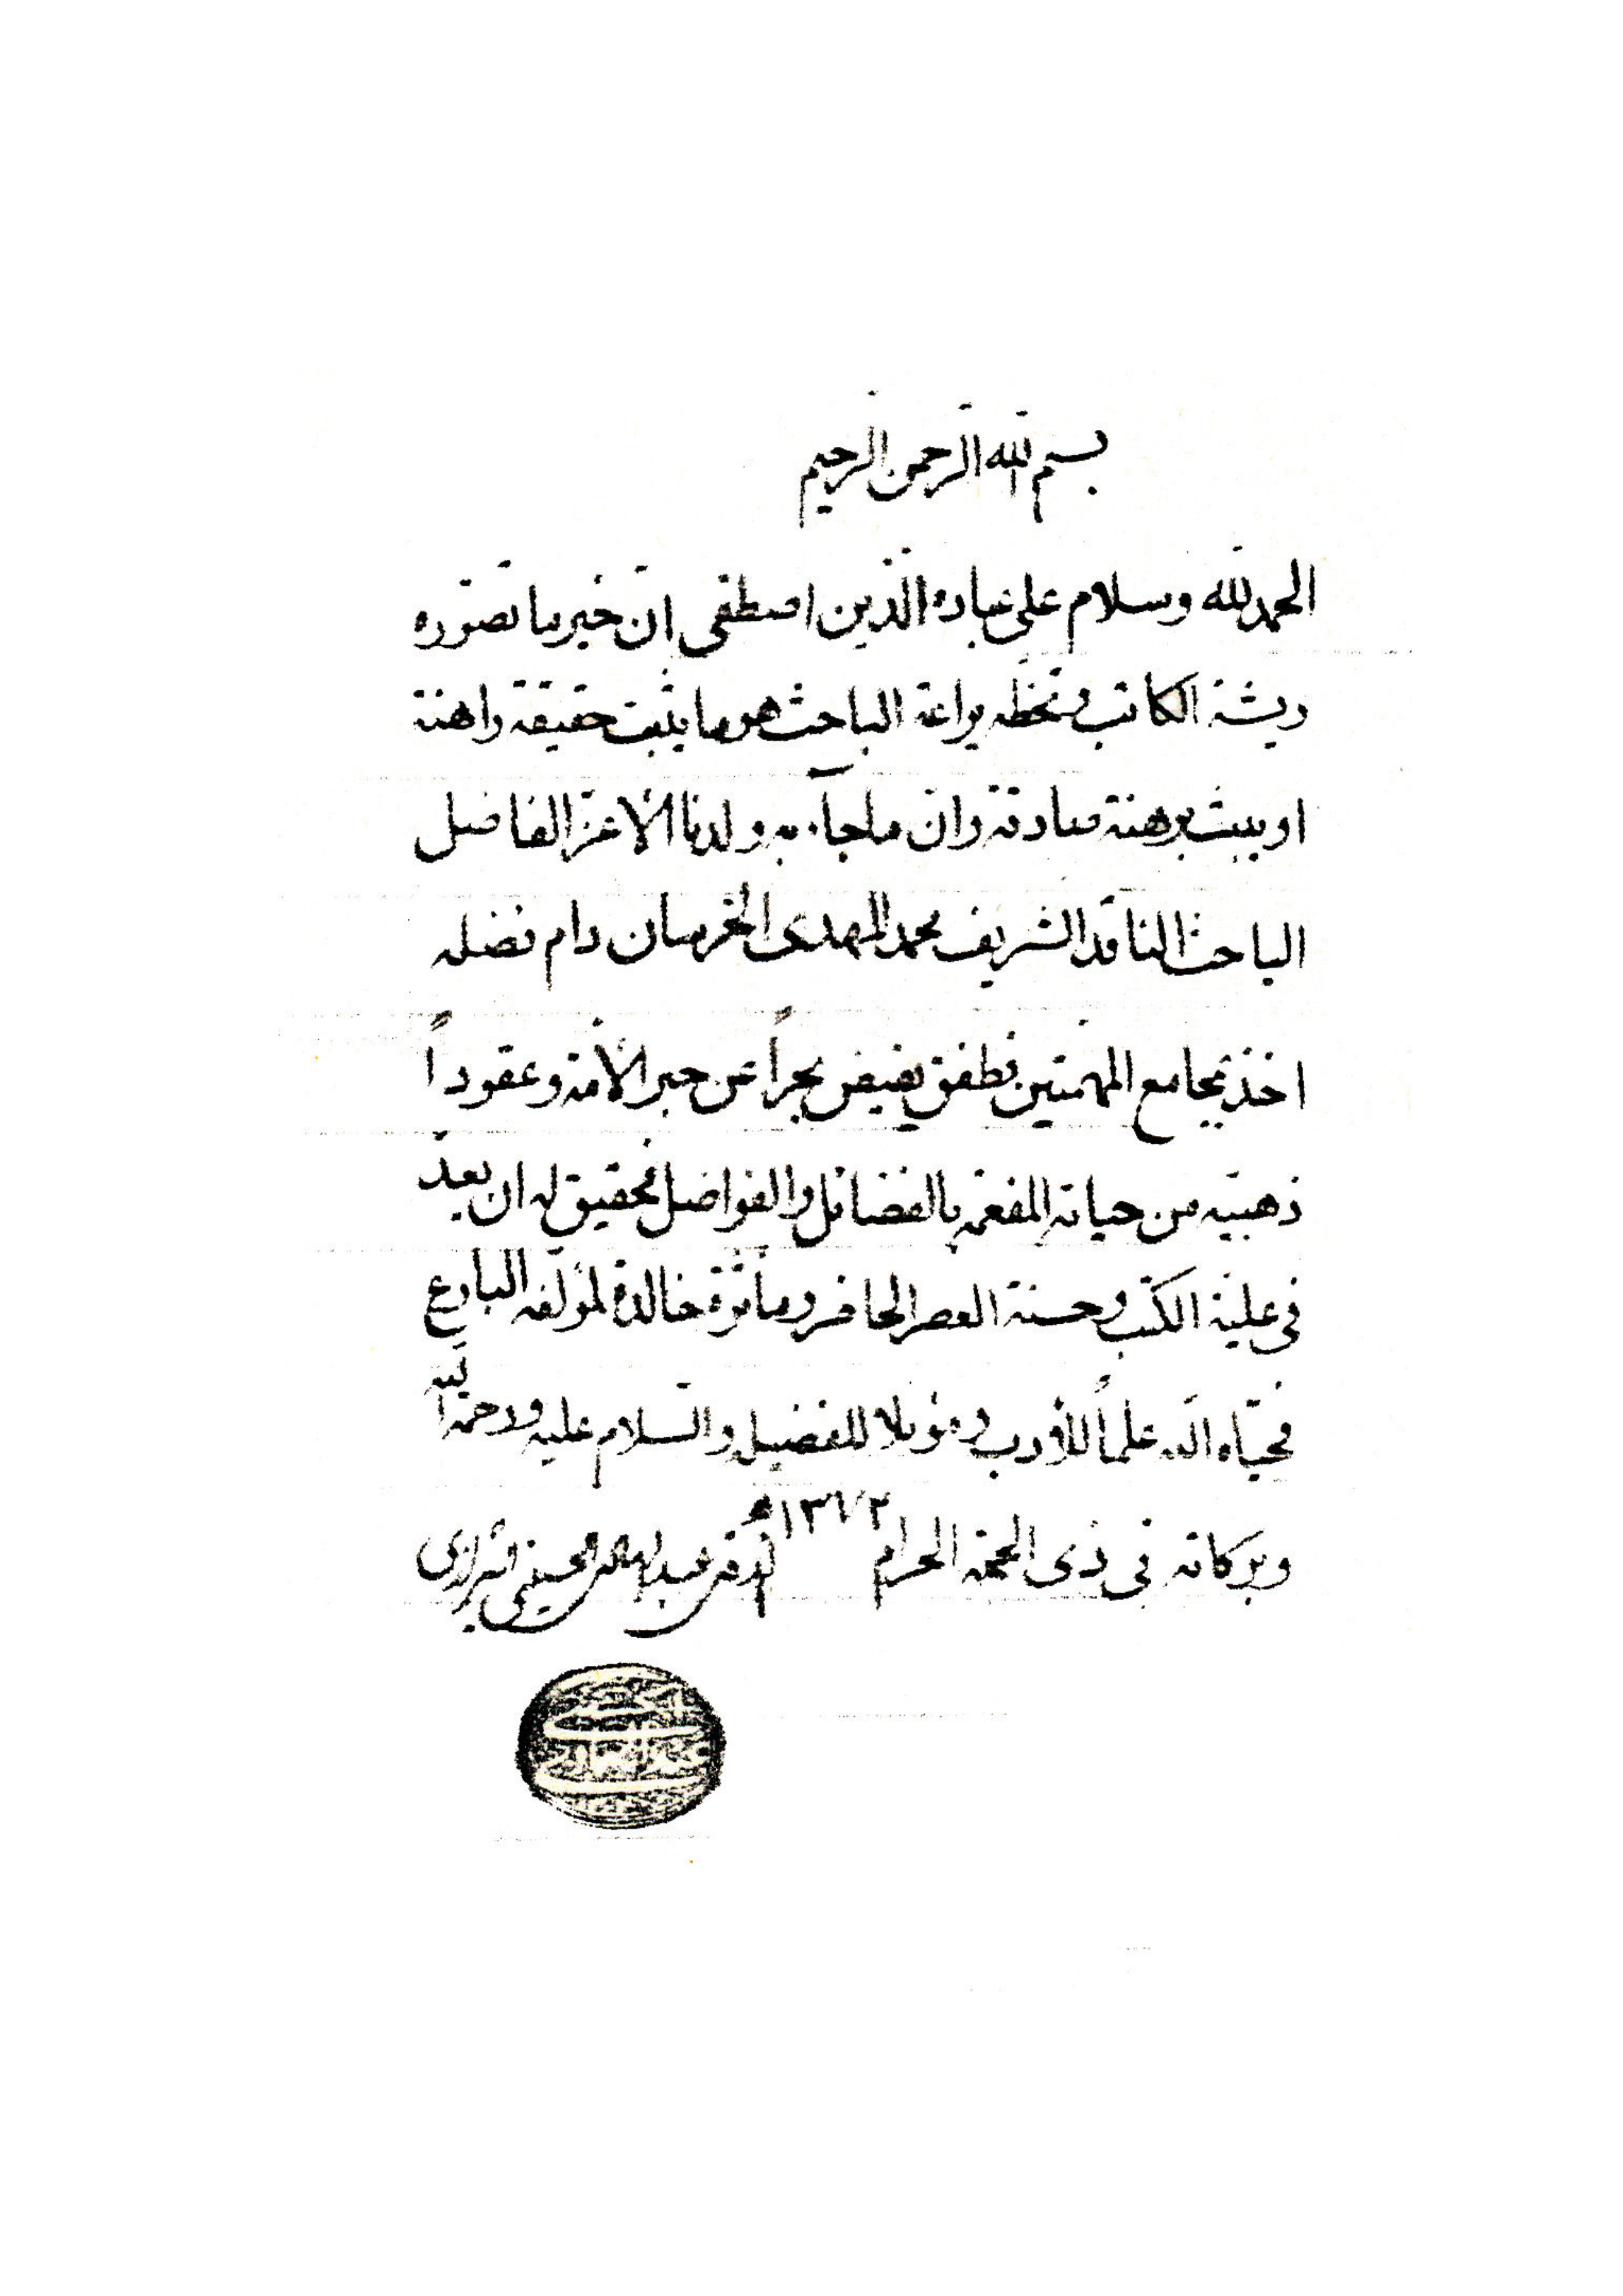 بسم الله الرحمن الرحيم
الحمد لله وسلام على عباده الذين اصطفى انّ خير ما تصوّره
ريشة الكاتب وتخطّه يراعة الباحث هو ما يثبت حقيقة راهنة
او يبث برهنة صادقة وانّ ما جاء به ولدنا الاعزّ الفاضل
الباحث الناقد الشريف محمد المهدى الخرسان دام فضله
اخذ بمجامع المهمتين فطفق يفيض بحراً عن حبر الأمة وعقوداً
ذهبيّة من حياته المفعمة بالفضائل والفواضل فحقيق له ان يعدّ
فى علية الكتب وحسنة العصر الحاضر ومأثرة خالدة لمؤلّفه البارع
فحيّاه الله علماً للأدب وموئلا للفضيلة والسلام عليه ورحمة الله
وبركاته فى ذى الحجة الحرام ١٣٧٢ه الاحقر عبد الهادى الحسينى الشيرازى